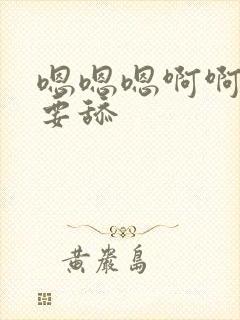 嗯嗯嗯啊啊
要舔
黄岩島